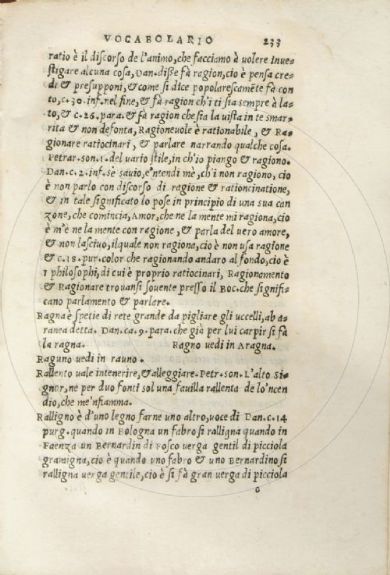 VOCABOLARIO 233
ratio è il discorso de l'animo, che facciamo à uolere Inue-
stigare alcuna cosa, Dan. disse fà ragion, cio è pensa cre-
di & presupponi, & come si dice popolarescamēte fà con-
to, c. 30. inf. nel fine, & fà ragion ch'i ti sia sempre à la-
to, & c. 26. para. & fà ragion che sia la uista in te smar-
rita & non defonta, Ragioneuole è rationabile, & Ra-
gionare ratiocinari, & parlare narrando qualche cosa.
Petrar. son. 1. del uario stile, in ch'io piango & ragiono.
Dan. c. 2. inf. sè sauio, e'ntendi me, ch'i non ragiono, cio
è non parlo con discorso di ragione & rationcinatione,
& in tale significato lo pose in principio di una sua can
zone, che comincia, Amor, che ne la mente mi ragiona, cio
è m'è ne la mente con ragione, & parla del uero amore,
& non lasciuo, ilquale non ragiona, cio è non usa ragione
& c. 18. pur. color che ragionando andaro al fondo, cio è
i philosophi, di cui è proprio ratiocinari, Ragionamento
& Ragionare trouansi souente presso il Boc. che signifi-
cano parlamento & parlere.
Ragna è spetie di rete grande da pigliare gli uccelli, ab a-
ranea detta. Dan. ca. 9. para. che già per lui carpir si fà
la ragna. Ragno uedi in Aragna.
Raguno uedi in rauno.
Rallento uale intenerire, & alleggiare. Petr. son. L'alto Si-
gnor, ne per duo fonti sol una fauilla rallenta de lo'ncen
dio, che me'nfiamma.
Ralligno è d'uno legno farne uno altro, uoce di Dan. c. 14
purg. quando in Bologna un fabro si ralligna quando in
Faenza un Bernardin di Fosco uerga gentil di picciola
gramigna, cio è quando uno fabro & uno Bernardino si
ralligna uerga gentile, cio è si fà gran uerga di picciola
G